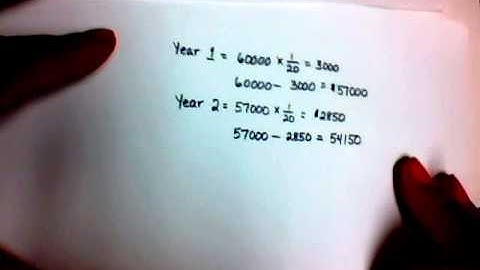 Year 1 = 60000 × 1/20 = 3000
60000 - 3000 = $57000
Year 2 = 57000 × 1/20 = $2850
57000 - 2850 = 54150